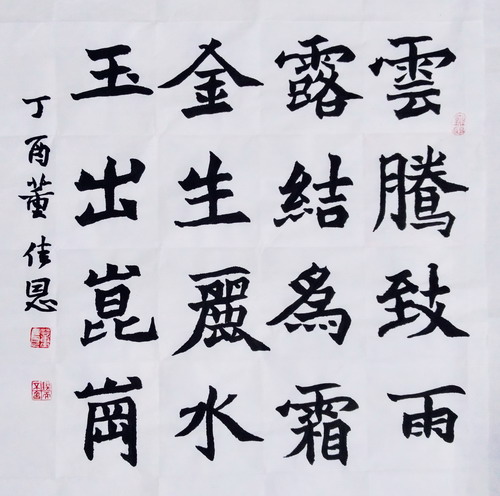 雲騰致雨
露結為霜
金生麗水
玉出崑崗
丁酉董佳恩